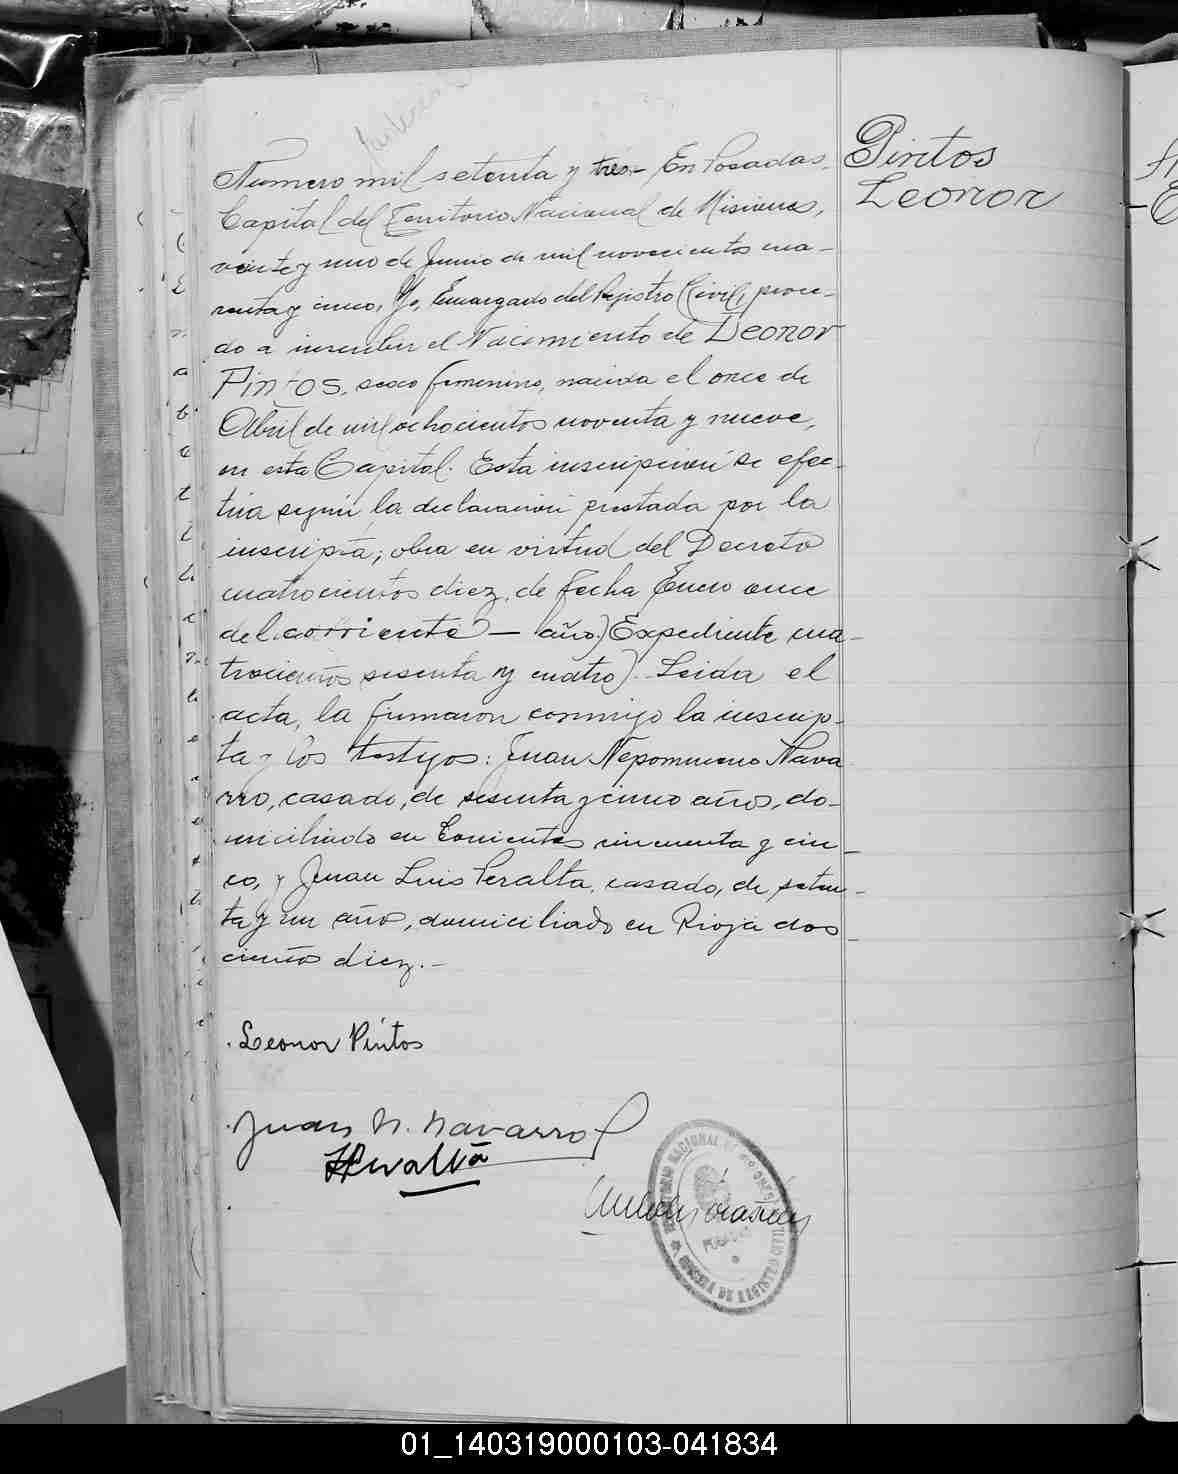 Pintos
Leonor
Numero mil setenta y tres - En Posadas,
Capital del Territorio Nacional de Misiones,
veinte y uno de Junio de mil novecientos cua-
renta y cinco, Yo, Encargado del Registro Civil, proce-
do a inscribir el Nacimiento de Leonor
Pintos, sexo femenino, nacida el once de
Abril de mil ochocientos noventa y nueve,
en esta Capital. Esta inscripción se efec-
túa según la declaración prestada por la
inscripta, obra en virtud del Decreto
cuatrocientos diez, de fecha Enero once
del corriente — año) Expediente cua-
trocientos sesenta y cuatro). Leida el
acta, la firmaron conmigo la inscrip-
ta y los testigos: Juan Nepomuceno Nava
rro, casado, de sesenta y cinco años, do-
miciliado en Corrientes cincuenta y cin-
co, y Juan Luis Peralta, casado, de seten-
ta y un años, domiciliado en Rioja dos
cientos diez. -
Leonor Pintos
Juan N. Navarro
Peralta
TERRITORIO NACIONAL DE MISIONES
POSADAS
OFICINA DE REGISTRO CIVIL
01_140319000103-041834